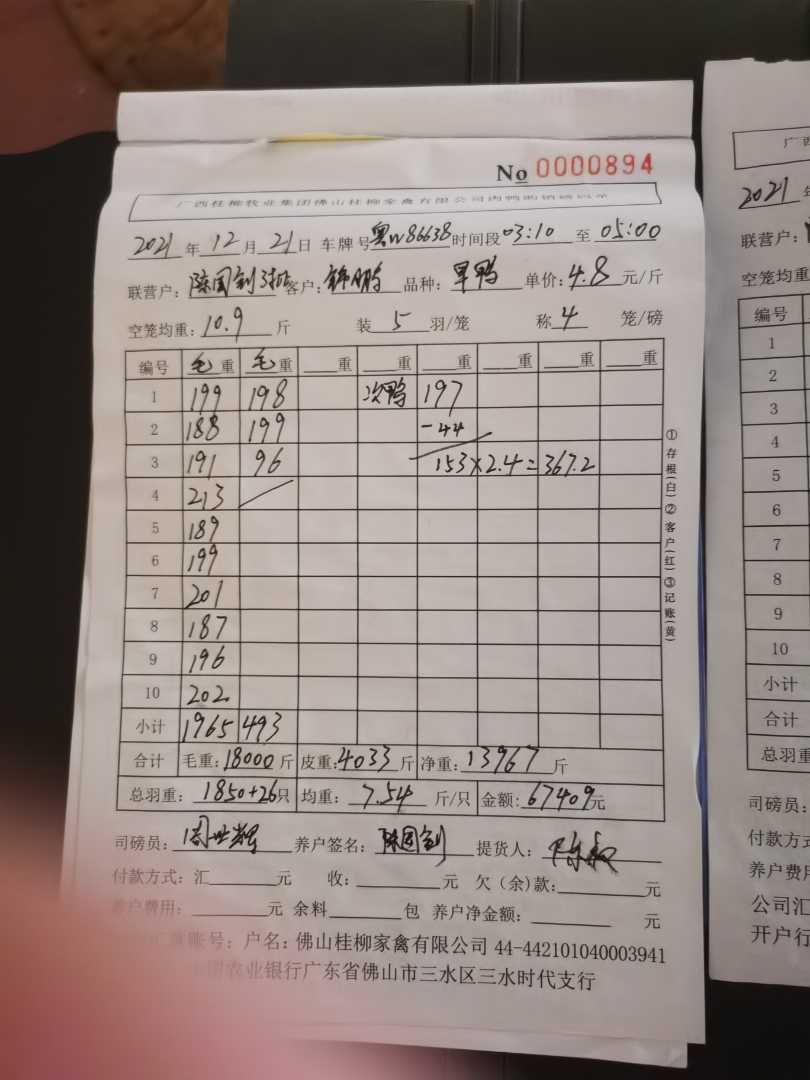 No 0000894
广西桂柳牧业集团佛山桂柳家禽有限公司肉鸭购销磅码单
2021年12月21日 车牌号粤W86638时间段03:10至05:00
联营户:陈国钊 客户: 品种:旱鸭 单价:4.8元/斤
空笼均重:10.9斤 装5羽/笼 称4笼/磅
编号 毛重 毛重 重 重 重 重 重 重
1 199 198 次鸭 197
2 188 199 -44
3 191 96 153×2.4=367.2
4 213
5 189
6 199
7 201
8 187
9 196
10 202
小计 1965 493
合计 毛重:18000斤 皮重:4033斤 净重:13967斤
总羽重:1850+26只 均重:7.54斤/只 金额:67409元
司磅员: 养户签名:陈国钊 提货人:
付款方式:汇 元 收: 元 欠(余)款: 元
养户费用: 元 余料 包 养户净金额: 元
账号:户名:佛山桂柳家禽有限公司 44-442101040003941
农业银行广东省佛山市三水区三水时代支行
①存根(白)②客户(红)③记账(黄)
广西
2021年
联营户:
空笼均重
编号
1
2
3
4
5
6
7
8
9
10
小计
合计
总羽重
司磅员:
付款方式
养户费用
公司汇
开户行